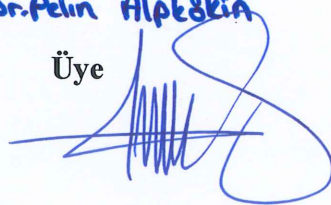 Dr.Pelin Alpkökin
Üye